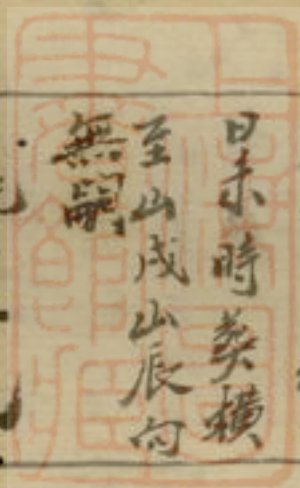 日未時葬横
至山戍山辰向
無嗣